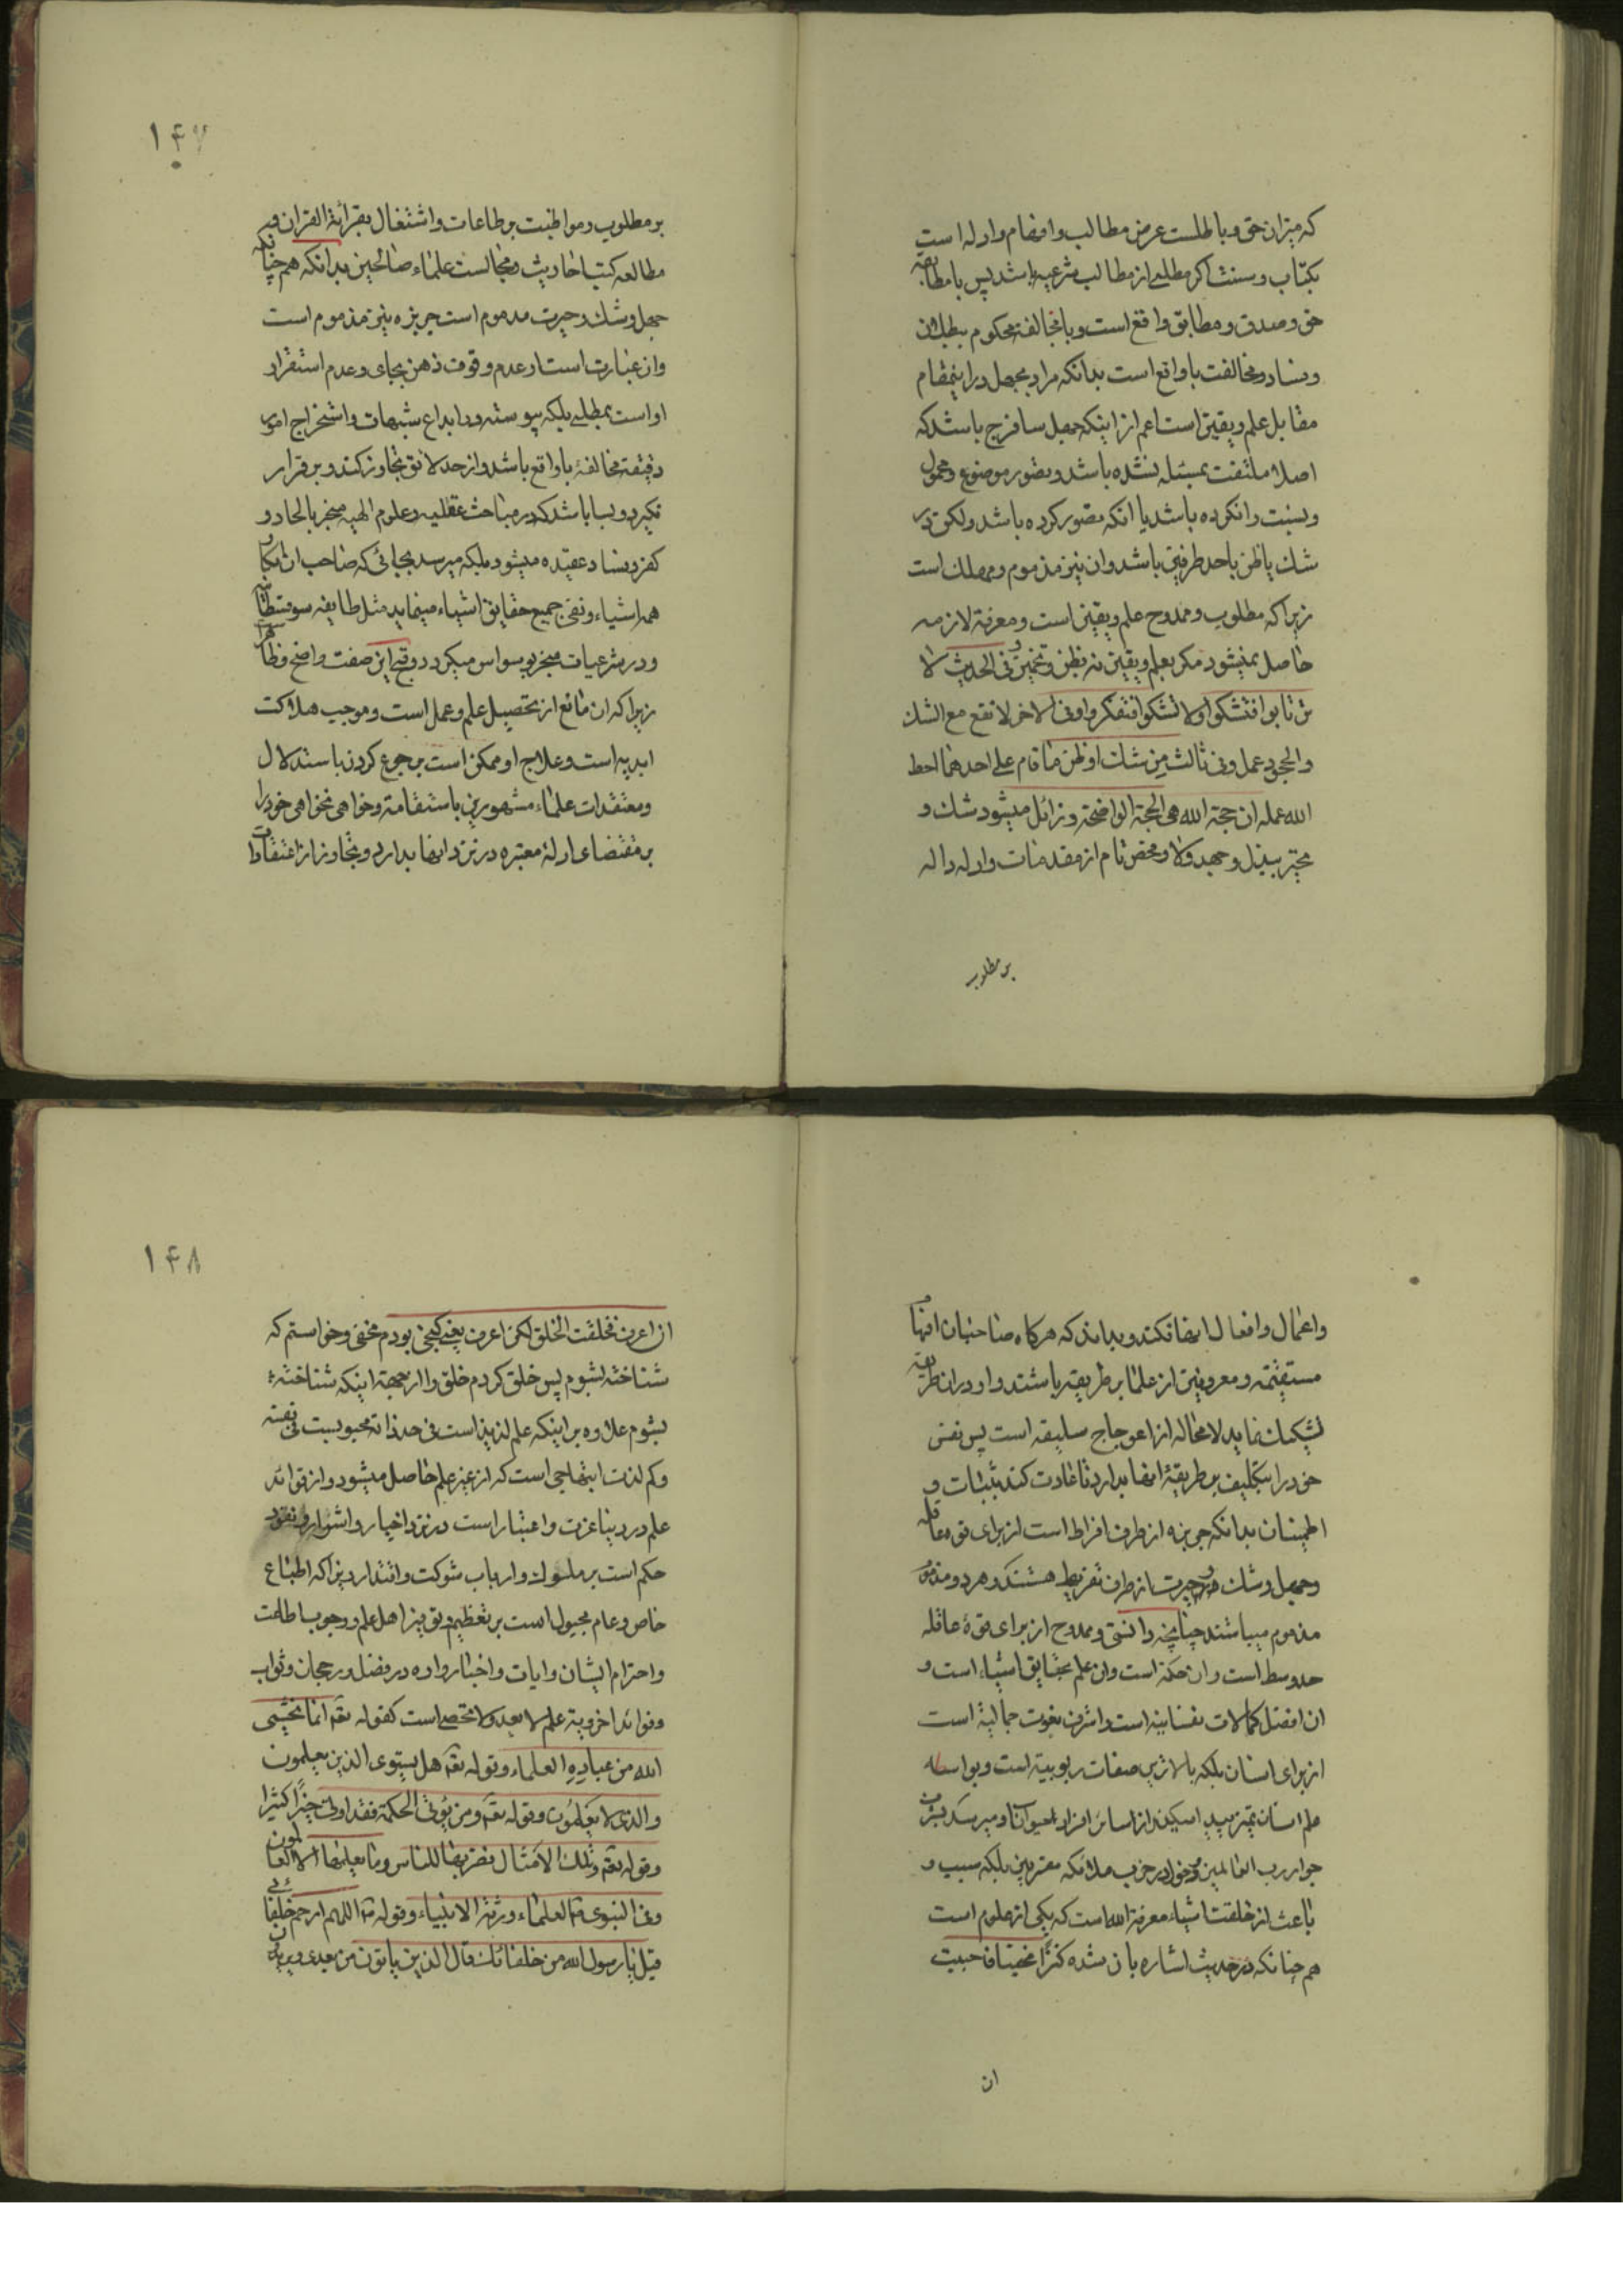 که میزان حق و باطلست عرض مطالب و افهام و ادله است
بکتاب و سنت اکر مطلبی از مطالب شرعیه باشد پس با مطابقه
حق و صدق و مطابق واقع است و با مخالفة محکوم ببطلان
و فساد و مخالفت با واقع است بدانکه مراد بجهل در اینمقام
مقابل علم و یقین است اعم از اینکه جهل ساذج باشد که
اصلا ملتفت بمسئله نشده باشد و تصور موضوع و محمول
و نسبت را نکرده باشد یا انکه تصور کرده باشد و لکن در
شک یا ظن باحد طرفین باشد و ان نیز مذموم و مهلک است
زیرا که مطلوب و ممدوح علم و یقین است و معرفة لازمه
حاصل نمیشود مکر بعلم و یقین نه بظن و تخمین و فی الحدیث لا
ترتابوا فتشکوا و لا تشکوا فتکفروا و فی الاخر لا تقع مع الشک
و الجحود عمل و فی ثالث من شک او ظن فاقام علی احدهما احبط
الله عمله ان حجة الله هی الحجة الواضحة و زائل میشود شک و
تحیر ببذل و جهد و فحص تام از مقدمات و ادله داله
بر مطلوب
۱۴۷
بر مطلوب و مواظبت بر طاعات و اشتغال بقرائة القران و
مطالعه کتب احادیث و مجالست علماء صالحین بدانکه هم چنانکه
جهل و شک و حیرت مذموم است جربزه نیز مذموم است
و ان عبارت است از عدم وقوف ذهن بجای و عدم استقرار
او است بمطلبی بلکه پیوسته در ابداع شبهات و استخراج امور
دقیقه مخالفهٔ با واقع باشد و از حد لائق تجاوز کند و بر قرار
نکیرد و بسا باشد که در مباحث عقلیه و علوم الهیه منجر بالحاد و
کفر و فساد عقیده میشود بلکه میرسد بجائی که صاحب ان انکار
همه اشیاء و نفی جمیع حقایق اشیاء مینماید مثل طایفه سوفسطائیه
و در شرعیات منجر بوسواس میکردد و قبح این صفت واضح و ظاهر
زیرا که ان مانع از تحصیل علم و عمل است و موجب هلاکت
ابدیه است و علاج او ممکن است برجوع کردن باستدلال
و معتقدات علماء مشهورین باستقامة و خواهی نخواهی خود را
بر مقتضای ادلهٔ معتبره در نزد انها بدارد و تجاوز از اعتقادات
و اعمال و افعال انها نکند و بداند که هرکاه صاحبان افهام
مستقیمه و معروفین از علما بر طریقه باشند و او در ان طریقه
تشکیک نماید لامحاله از اعوجاج سلیقه است پس نفس
خود را بتکلیف بر طریقهٔ انها بدارد تا عادت کند بثبات و
اطمینان بدانکه جربزه از طرف افراط است از برای قوه عاقله
و جهل و شک و حیرت از طرف تفریط هستند و هر دو
مذموم میباشند چنانچه دانستی و ممدوح از برای قوهٔ عاقله
حد وسط است و ان حکمة است و ان علم بحقایق اشیاء است و
ان افضل کمالات نفسانیه است و اشرف نعوت جمالیهٔ است
از برای انسان بلکه بالاترین صفات ربوبیة است و بواسطه
علم انسان تمیز پیدا میکند از سائر افراد حیوان و میرسد بقرب
جوار رب العالمین و دخول در حزب ملائکه مقربین بلکه سبب و
باعث از خلقت اشیاء معرفة الله است که یکی از علوم است
هم چنانکه در حدیث اشاره بان شده کنزا مخفیا فاحببت
ان
۱۴۸
ان اعرف فخلقت الخلق لکی اعرف یعنی کنجی بودم مخفی و خواستم که
شناخته بشوم پس خلق کردم خلق را از جهة اینکه شناخته
بشوم علاوه بر اینکه علم لذیذ است فی حد ذاته محبوبست فی نفسه
و کم لذت ابتهاجی است که از غیر علم حاصل میشود و از فوائد
علم در دنیا عزت و اعتبار است در نزد اخیار و اشرار و نفوذ
حکم است بر ملوک و ارباب شوکت و اقتدار زیرا که اطباع
خاص و عام مجبول است بر تعظیم و توقیر اهل علم و وجوب اطاعت
و احترام ایشان و ایات و اخبار وارده در فضل و رجحان و ثواب
و فوائد اخرویة علم لا یعد و لا تحصی است کقوله تعه انما یخشی
الله من عباده العلماء و قوله تعه هل یستوی الذین یعلمون
و الذین لا یعلمون و قوله تعه و من یؤتی الحکمة فقد اوتی خیرا کثیرا
و قوله تعه و تلک الامثال نضربها للناس و ما یعقلها الا العالمون
و فی النبوی ص العلماء ورثة الانبیاء و قوله ص اللهم ارحم خلفائی
قیل یا رسول الله من خلفائک قال الذین یاتون من بعدی و یروون